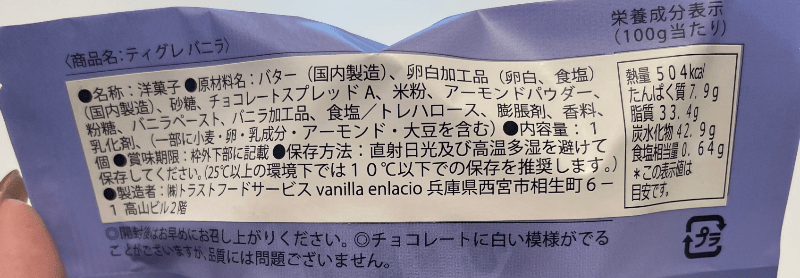 〈商品名：ティグレ バニラ〉
●名称：洋菓子 ●原材料名：バター（国内製造）、卵白加工品（卵白、食塩）
（国内製造）、砂糖、チョコレートスプレッド A、米粉、アーモンドパウダー、
粉糖、バニラペースト、バニラ加工品、食塩／トレハロース、膨脹剤、香料、
乳化剤、（一部に小麦・卵・乳成分・アーモンド・大豆を含む）●内容量：１
個 ●賞味期限：枠外下部に記載 ●保存方法：直射日光及び高温多湿を避けて
保存してください。（25℃以上の環境下では１０℃以下での保存を推奨します。）
●製造者：㈱トラストフードサービス vanilla enlacio 兵庫県西宮市相生町６－
１ 高山ビル2階
◎開封後はお早めにお召し上がりください。◎チョコレートに白い模様がでる
ことがございますが、品質には問題ございません。
栄養成分表示
（100g当たり）
熱量 504kcal
たんぱく質 7.9g
脂質 33.4g
炭水化物 42.9g
食塩相当量 0.64g
＊この表示値は
目安です。
プラ